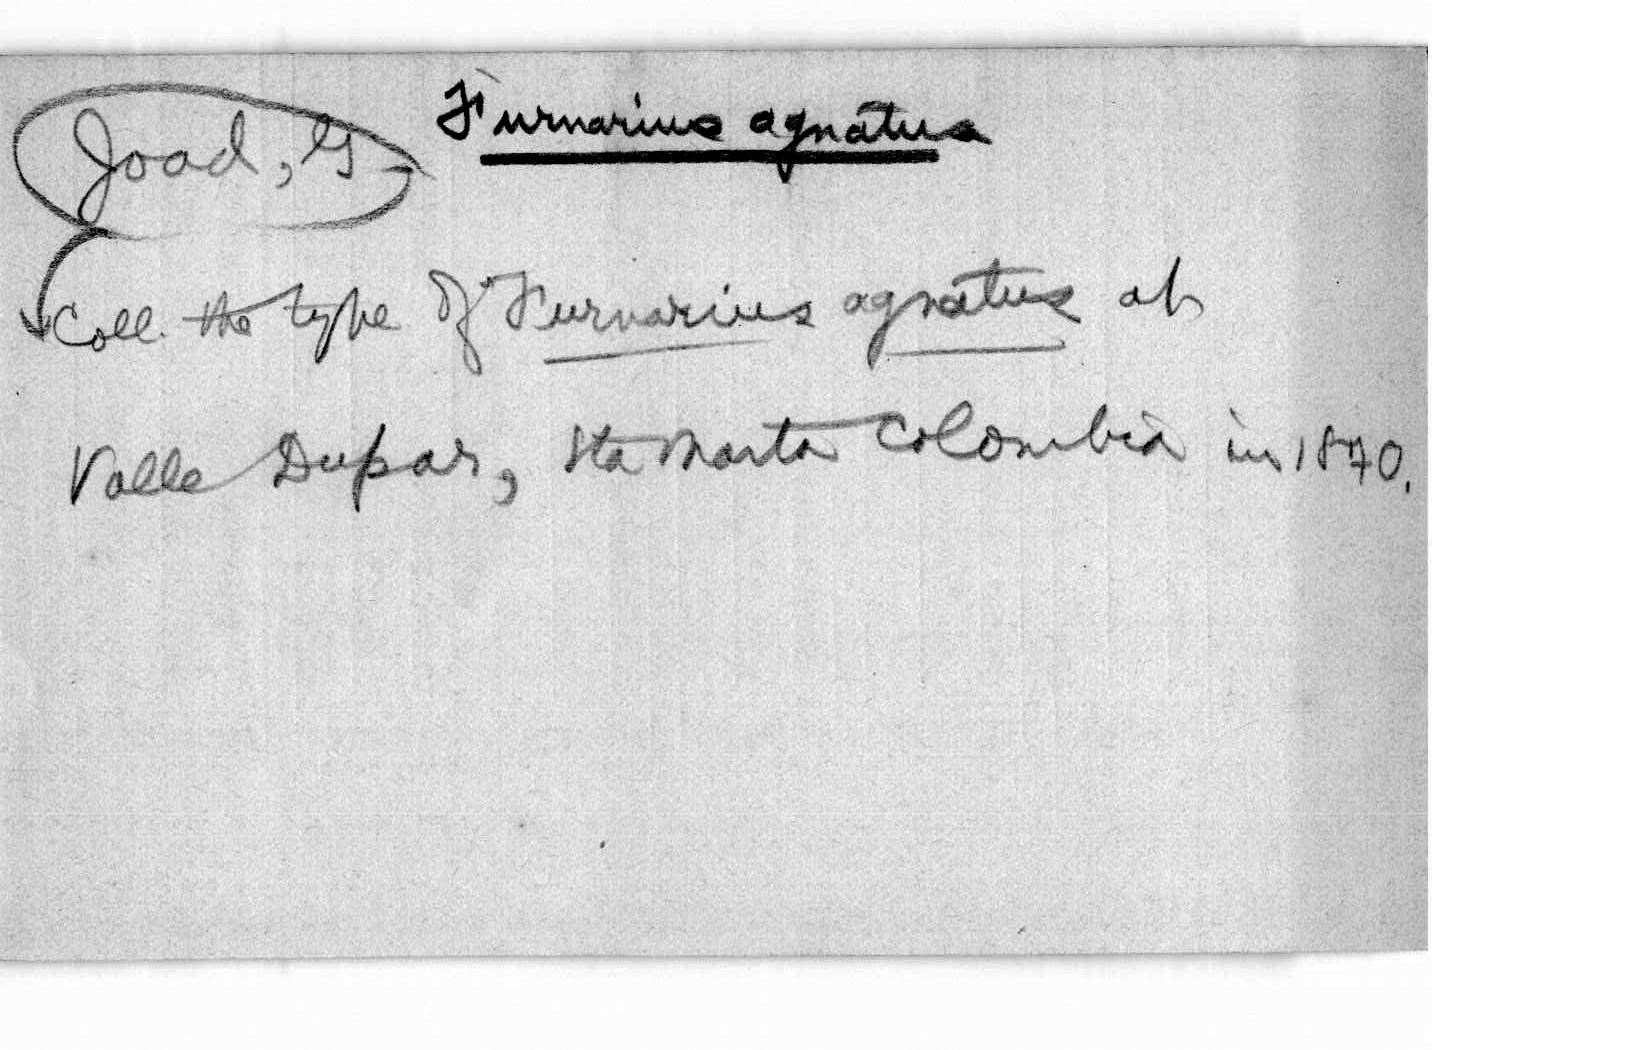 Joad, G Furnarius agnatus
Coll. the type of Furnarius agnatus at
Valle Dupar, Sta Marta Colombia in 1870.